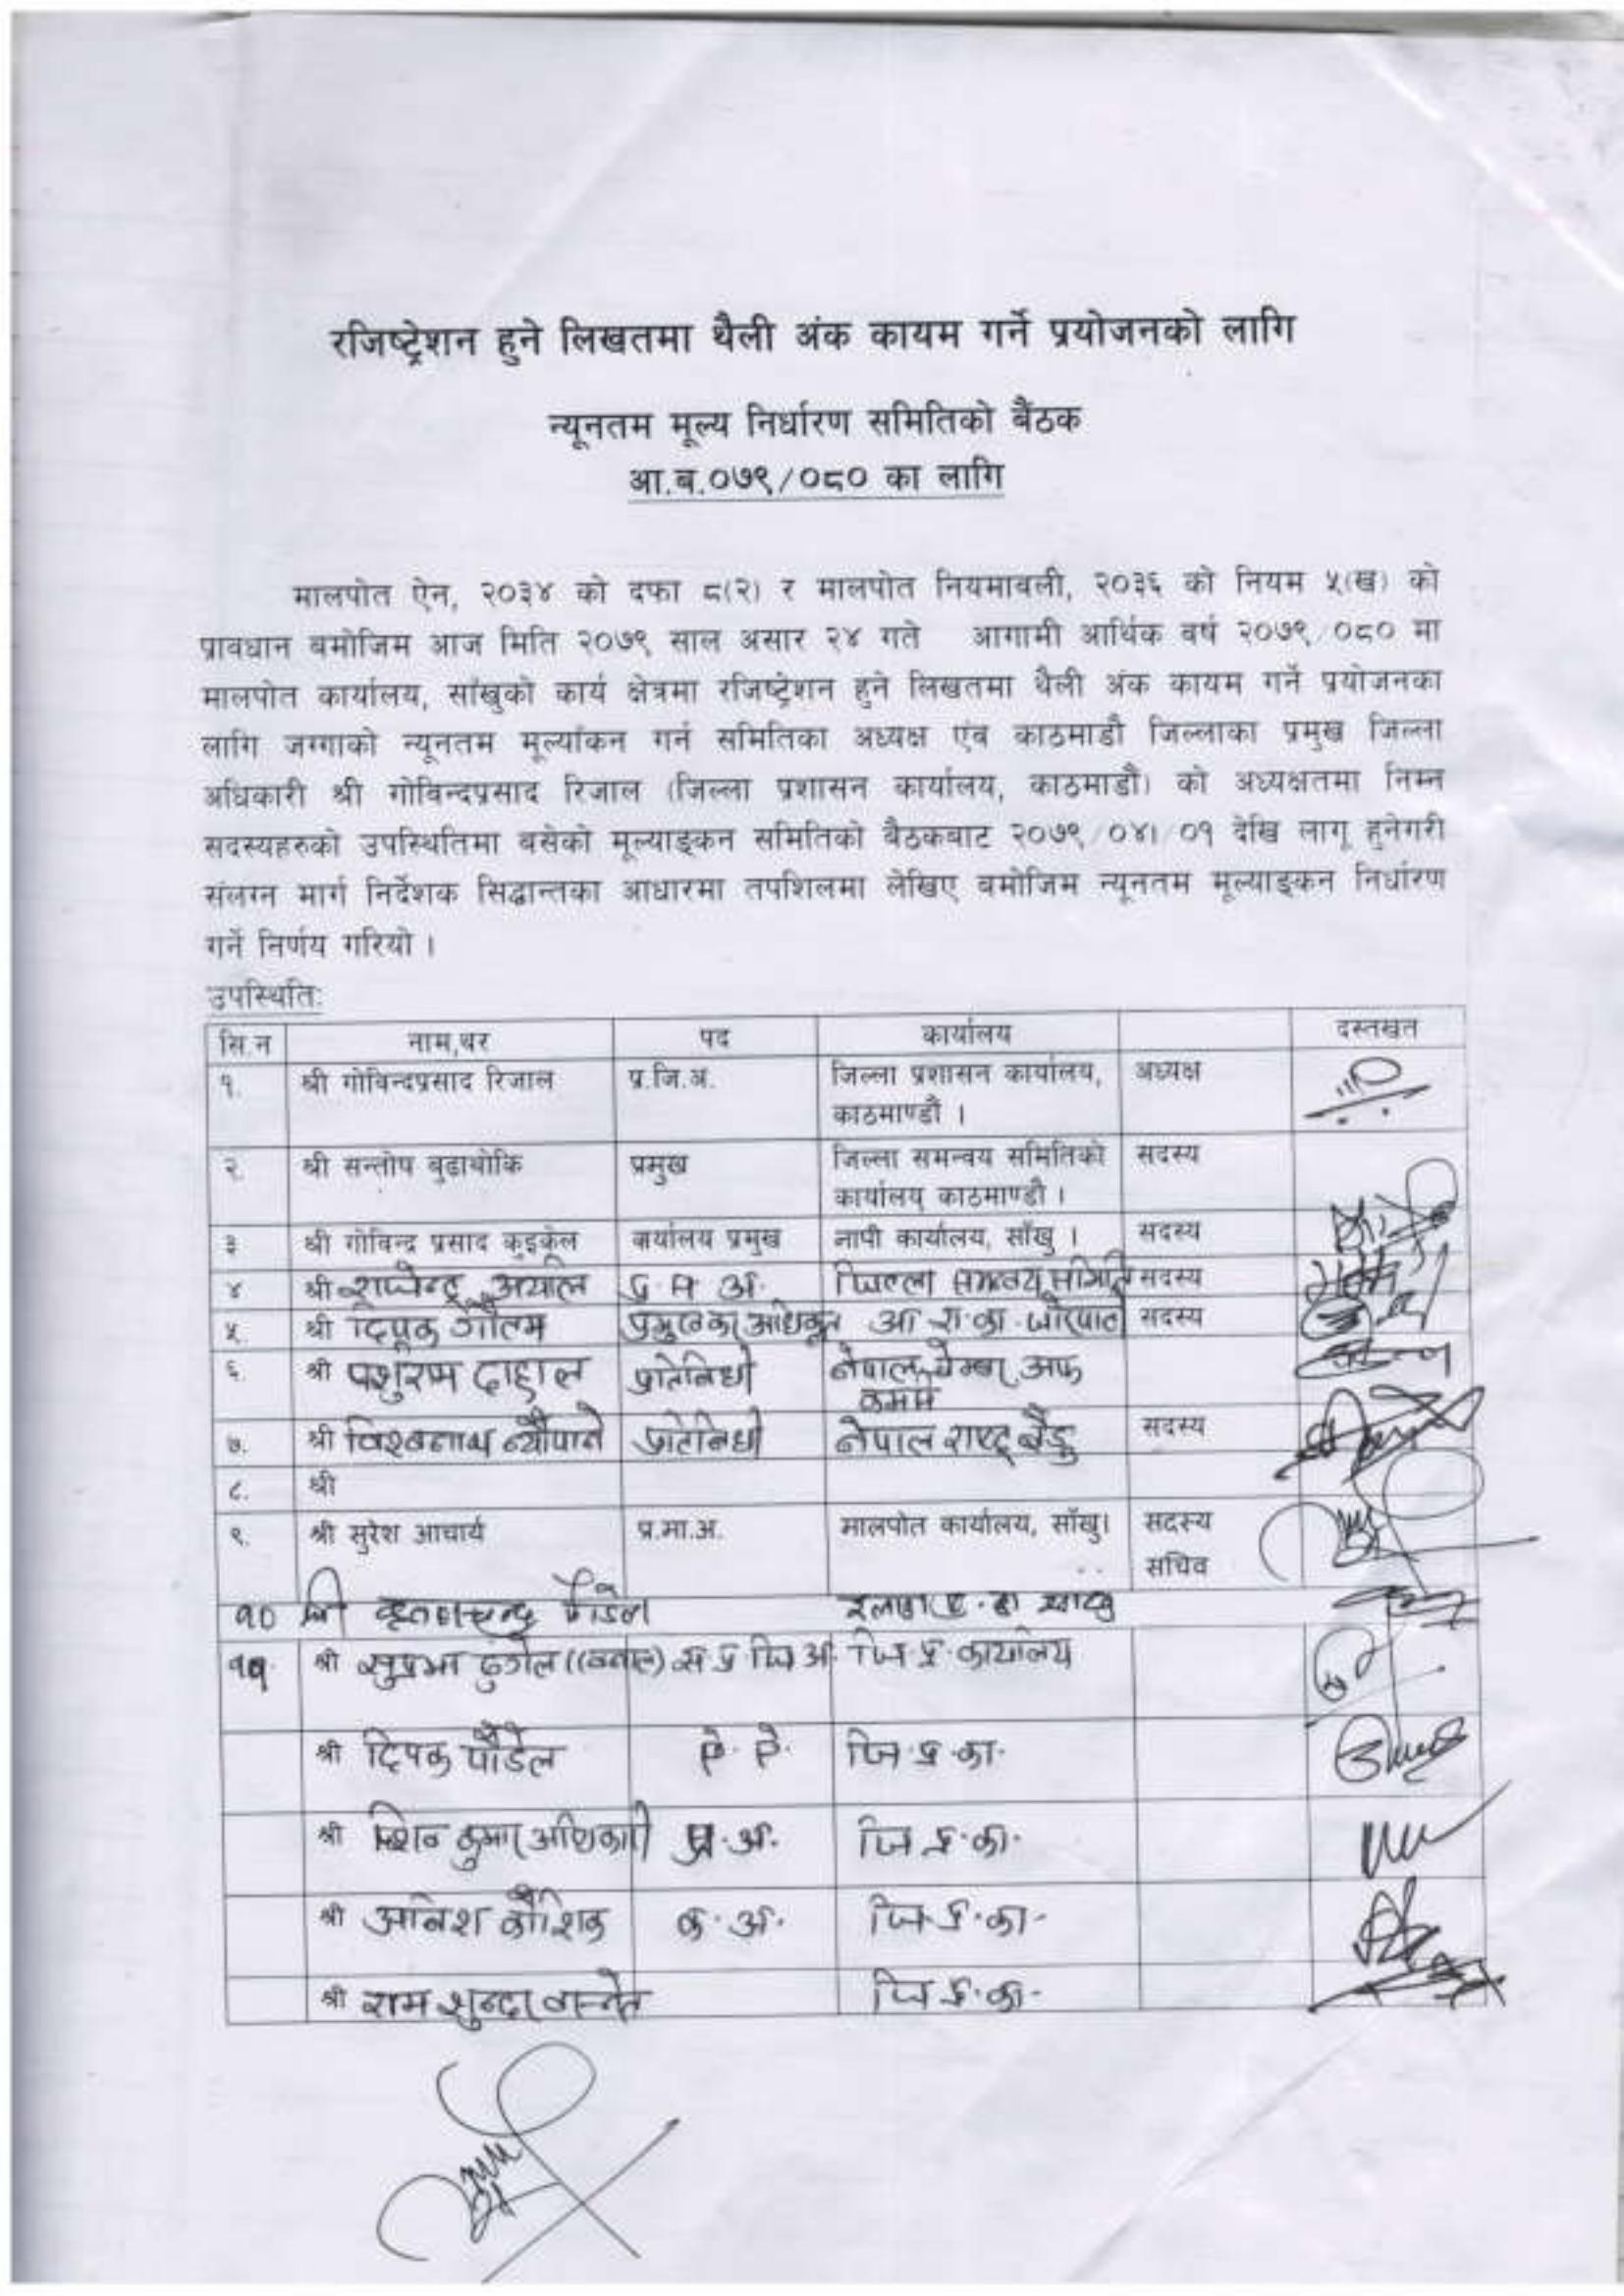 रजिष्ट्रेशन हुने लिखतमा थैली अंक कायम गर्ने प्रयोजनको लागि
न्यूनतम मूल्य निर्धारण समितिको बैठक
आ.ब.०७९/०८० का लागि
मालपोत ऐन, २०३४ को दफा ८(२) र मालपोत नियमावली, २०३६ को नियम ५(ख) को
प्रावधान बमोजिम आज मिति २०७९ साल असार २४ गते आगामी आर्थिक वर्ष २०७९/०८० मा
मालपोत कार्यालय, सांखुको कार्य क्षेत्रमा रजिष्ट्रेशन हुने लिखतमा थैली अंक कायम गर्ने प्रयोजनका
लागि जग्गाको न्यूनतम मूल्यांकन गर्न समितिका अध्यक्ष एंव काठमाडौ जिल्लाका प्रमुख जिल्ला
अधिकारी श्री गोविन्दप्रसाद रिजाल (जिल्ला प्रशासन कार्यालय, काठमाडौं) को अध्यक्षतमा निम्न
सदस्यहरुको उपस्थितिमा बसेको मूल्याङ्कन समितिको बैठकबाट २०७९/०४।०१ देखि लागू हुनेगरी
संलग्न मार्ग निर्देशक सिद्धान्तका आधारमा तपशिलमा लेखिए बमोजिम न्यूनतम मूल्याङ्कन निर्धारण
गर्ने निर्णय गरियो ।
उपस्थिति:
सि.न नाम,थर पद कार्यालय दस्तखत
१. श्री गोविन्दप्रसाद रिजाल प्र.जि.अ. जिल्ला प्रशासन कार्यालय, अध्यक्ष
काठमाण्डौं ।
२. श्री सन्तोष बुढाथोकि प्रमुख जिल्ला समन्वय समितिको सदस्य
कार्यालय काठमाण्डौ ।
३ श्री गोविन्द प्रसाद कुइकेल कार्यालय प्रमुख नापी कार्यालय, साँखु । सदस्य
४ श्री अर्याल जिल्ला समन्वय समिति सदस्य
५. श्री दिपक गौतम सदस्य
६. श्री पशुराम दाहाल प्रतिनिधी नेपाल चेम्बर अफ
कमर्स
७. श्री विश्वनाथ न्यौपाने प्रतिनिधी नेपाल राष्ट्र बैङ्क सदस्य
८. श्री
९. श्री सुरेश आचार्य प्र.मा.अ. मालपोत कार्यालय, साँखु। सदस्य
सचिव
१० श्री पौडेल
११. श्री सुप्रभा स.प्र.जि.अ. जि.प्र.कार्यालय
श्री दिपक पौडेल जि.प्र.का.
श्री शिव कुमार अधिकारी प्र.अ. जि.प्र.का.
श्री अनिश कौशिक क.अ. जि.प्र.का.
श्री राम सुन्दर बस्नेत जि.प्र.का.